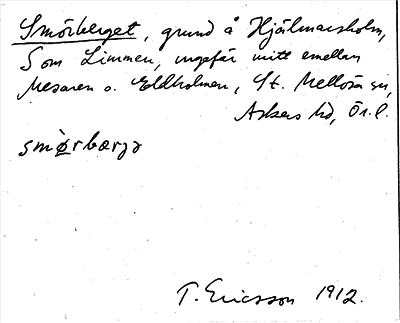 Smörberget, grund å Hjälmarsholm,
S om Limmen, ungefär mitt emellan
Mesaren o. Eldholmen, St. Mellösa sn,
Askers hd, Ör. l.
smörbærjə
T. Ericsson 1912.